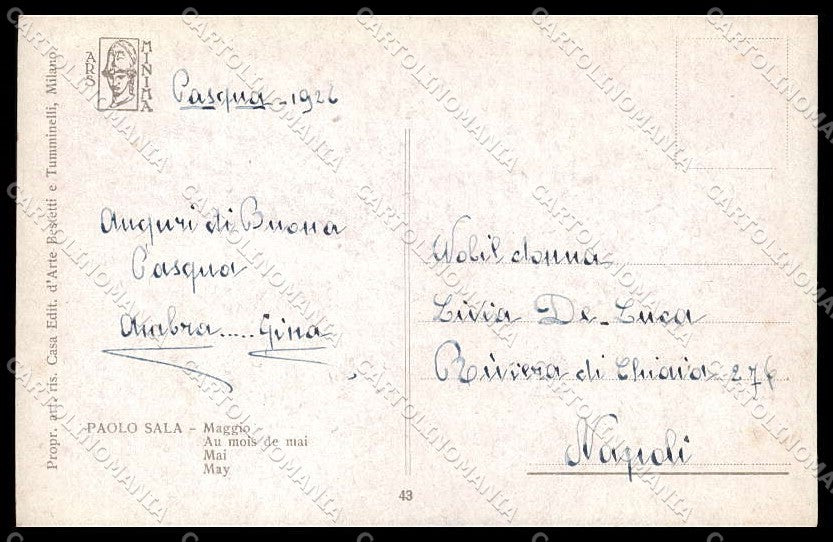 ARS MINIMA
Pasqua - 1922
Auguri di Buona
Pasqua
Ambra ..... Gina
PAOLO SALA - Maggio
Au mois de mai
Mai
May
Propr. art. ris. Casa Edit. d'Arte Bestetti e Tumminelli, Milano
43
Nobil donna
Livia De-Luca
Riviera di Chiaia 276
Napoli
CARTOLINOMANIA